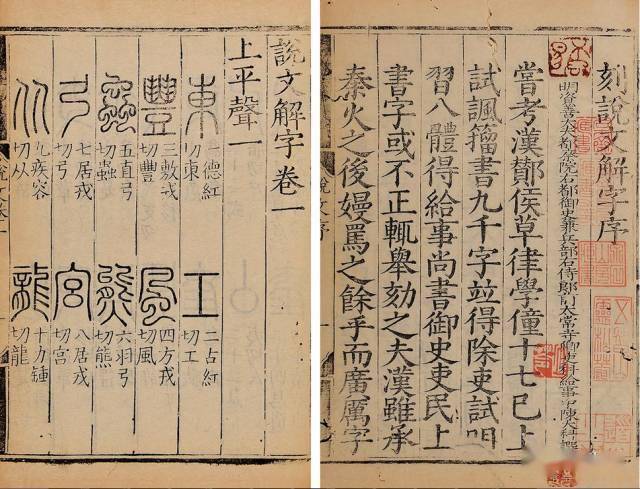 刻說文解字序
明資善大夫都察院右都御史兼兵部右侍郎前太常寺卿吏科給事中陳大科撰
嘗考漢酇侯草律學僮十七巳上
試諷籀書九千字並得除吏試明
習八體得給事尚書御史吏民上
書字或不正輒舉劾之夫漢雖承
秦火之後嫚罵之餘乎而廣厲字
說文序
說文解字卷一
上平聲一
東
一德紅
切東
工
二古紅
切工
豐
三敷戎
切豐
風
四方戎
切風
蟲
五直弓
切蟲
熊
六羽弓
切熊
弓
七居戎
切弓
宮
八居戎
切宮
从
九疾容
切从
龍
十力鍾
切龍